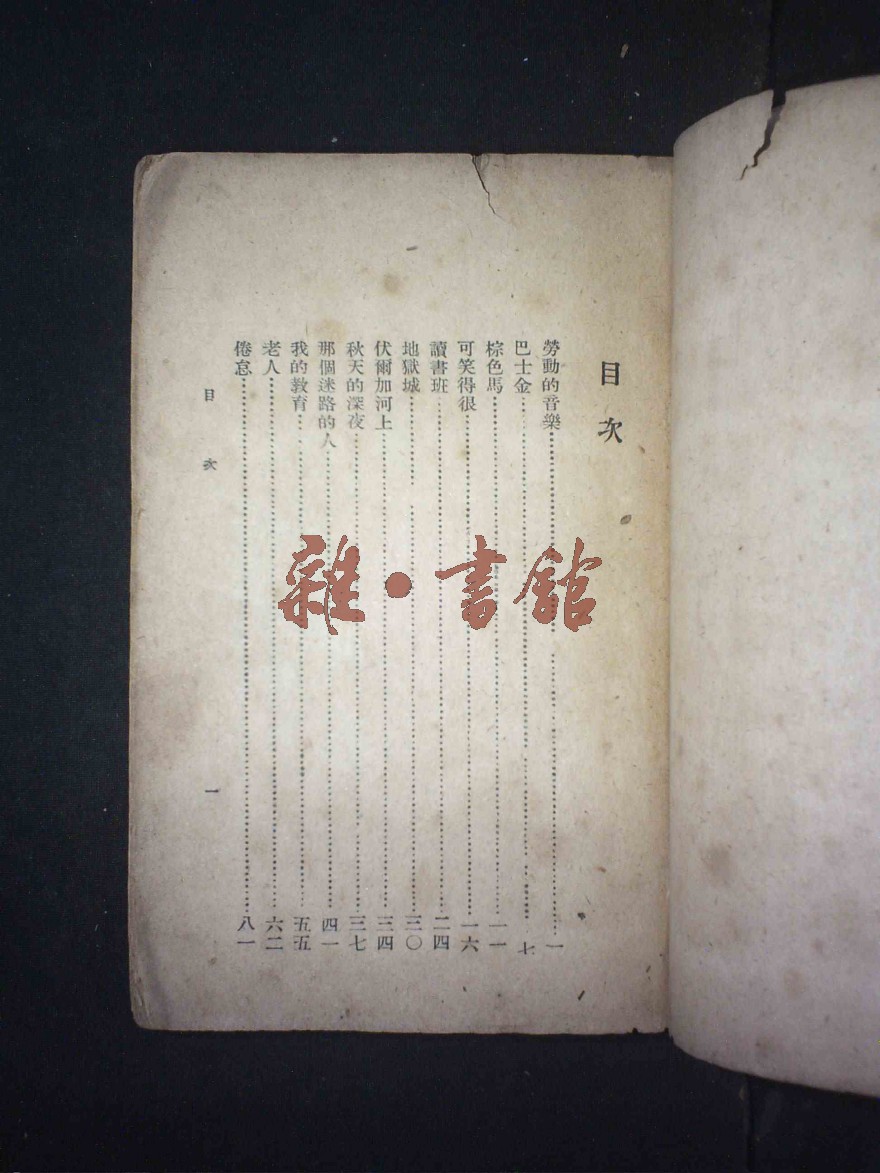 目次
勞動的音樂……一
巴士金……七
棕色馬……一一
可笑得很……一六
讀書班……二四
地獄城……三〇
伏爾加河上……三四
秋天的深夜……三七
那個迷路的人……四一
我的教育……五五
老人……六二
倦怠……八一
目次 一
雜·書館